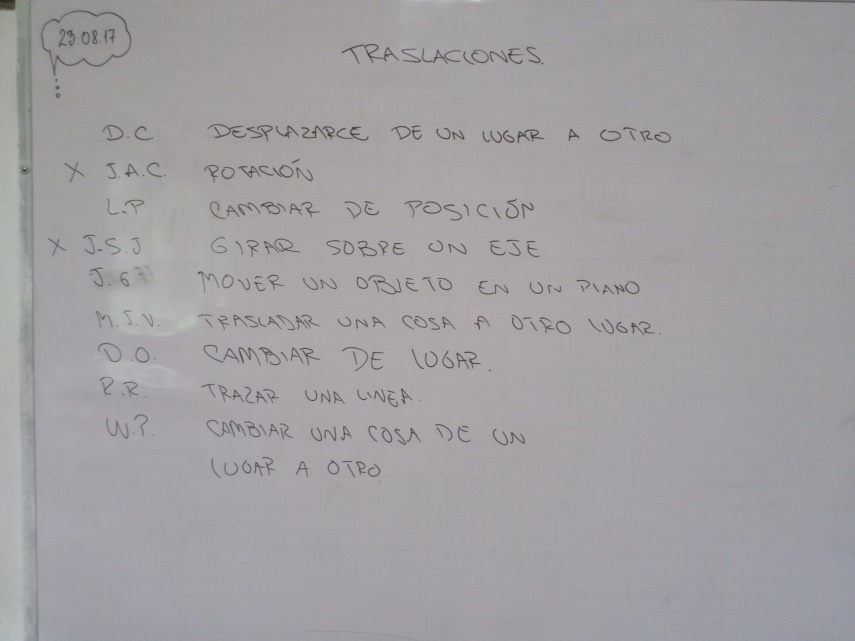 23.08.17
TRASLACIONES.
D.C DESPLAZARCE DE UN LUGAR A OTRO
X J.A.C. ROTACIÓN
L.P CAMBIAR DE POSICIÓN
X J-S.J GIRAR SOBRE UN EJE
J.G MOVER UN OBJETO EN UN PLANO
M.J.V. TRASLADAR UNA COSA A OTRO LUGAR.
D.O. CAMBIAR DE LUGAR.
R.R. TRAZAR UNA LINEA.
W.P. CAMBIAR UNA COSA DE UN
LUGAR A OTRO